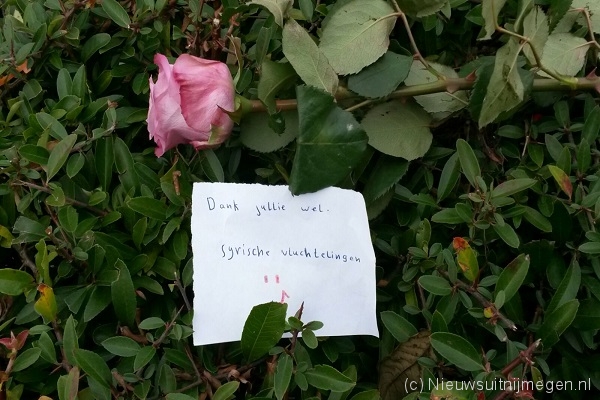 Dank jullie wel.
Syrische vluchtelingen
(c) Nieuwsuitnijmegen.nl